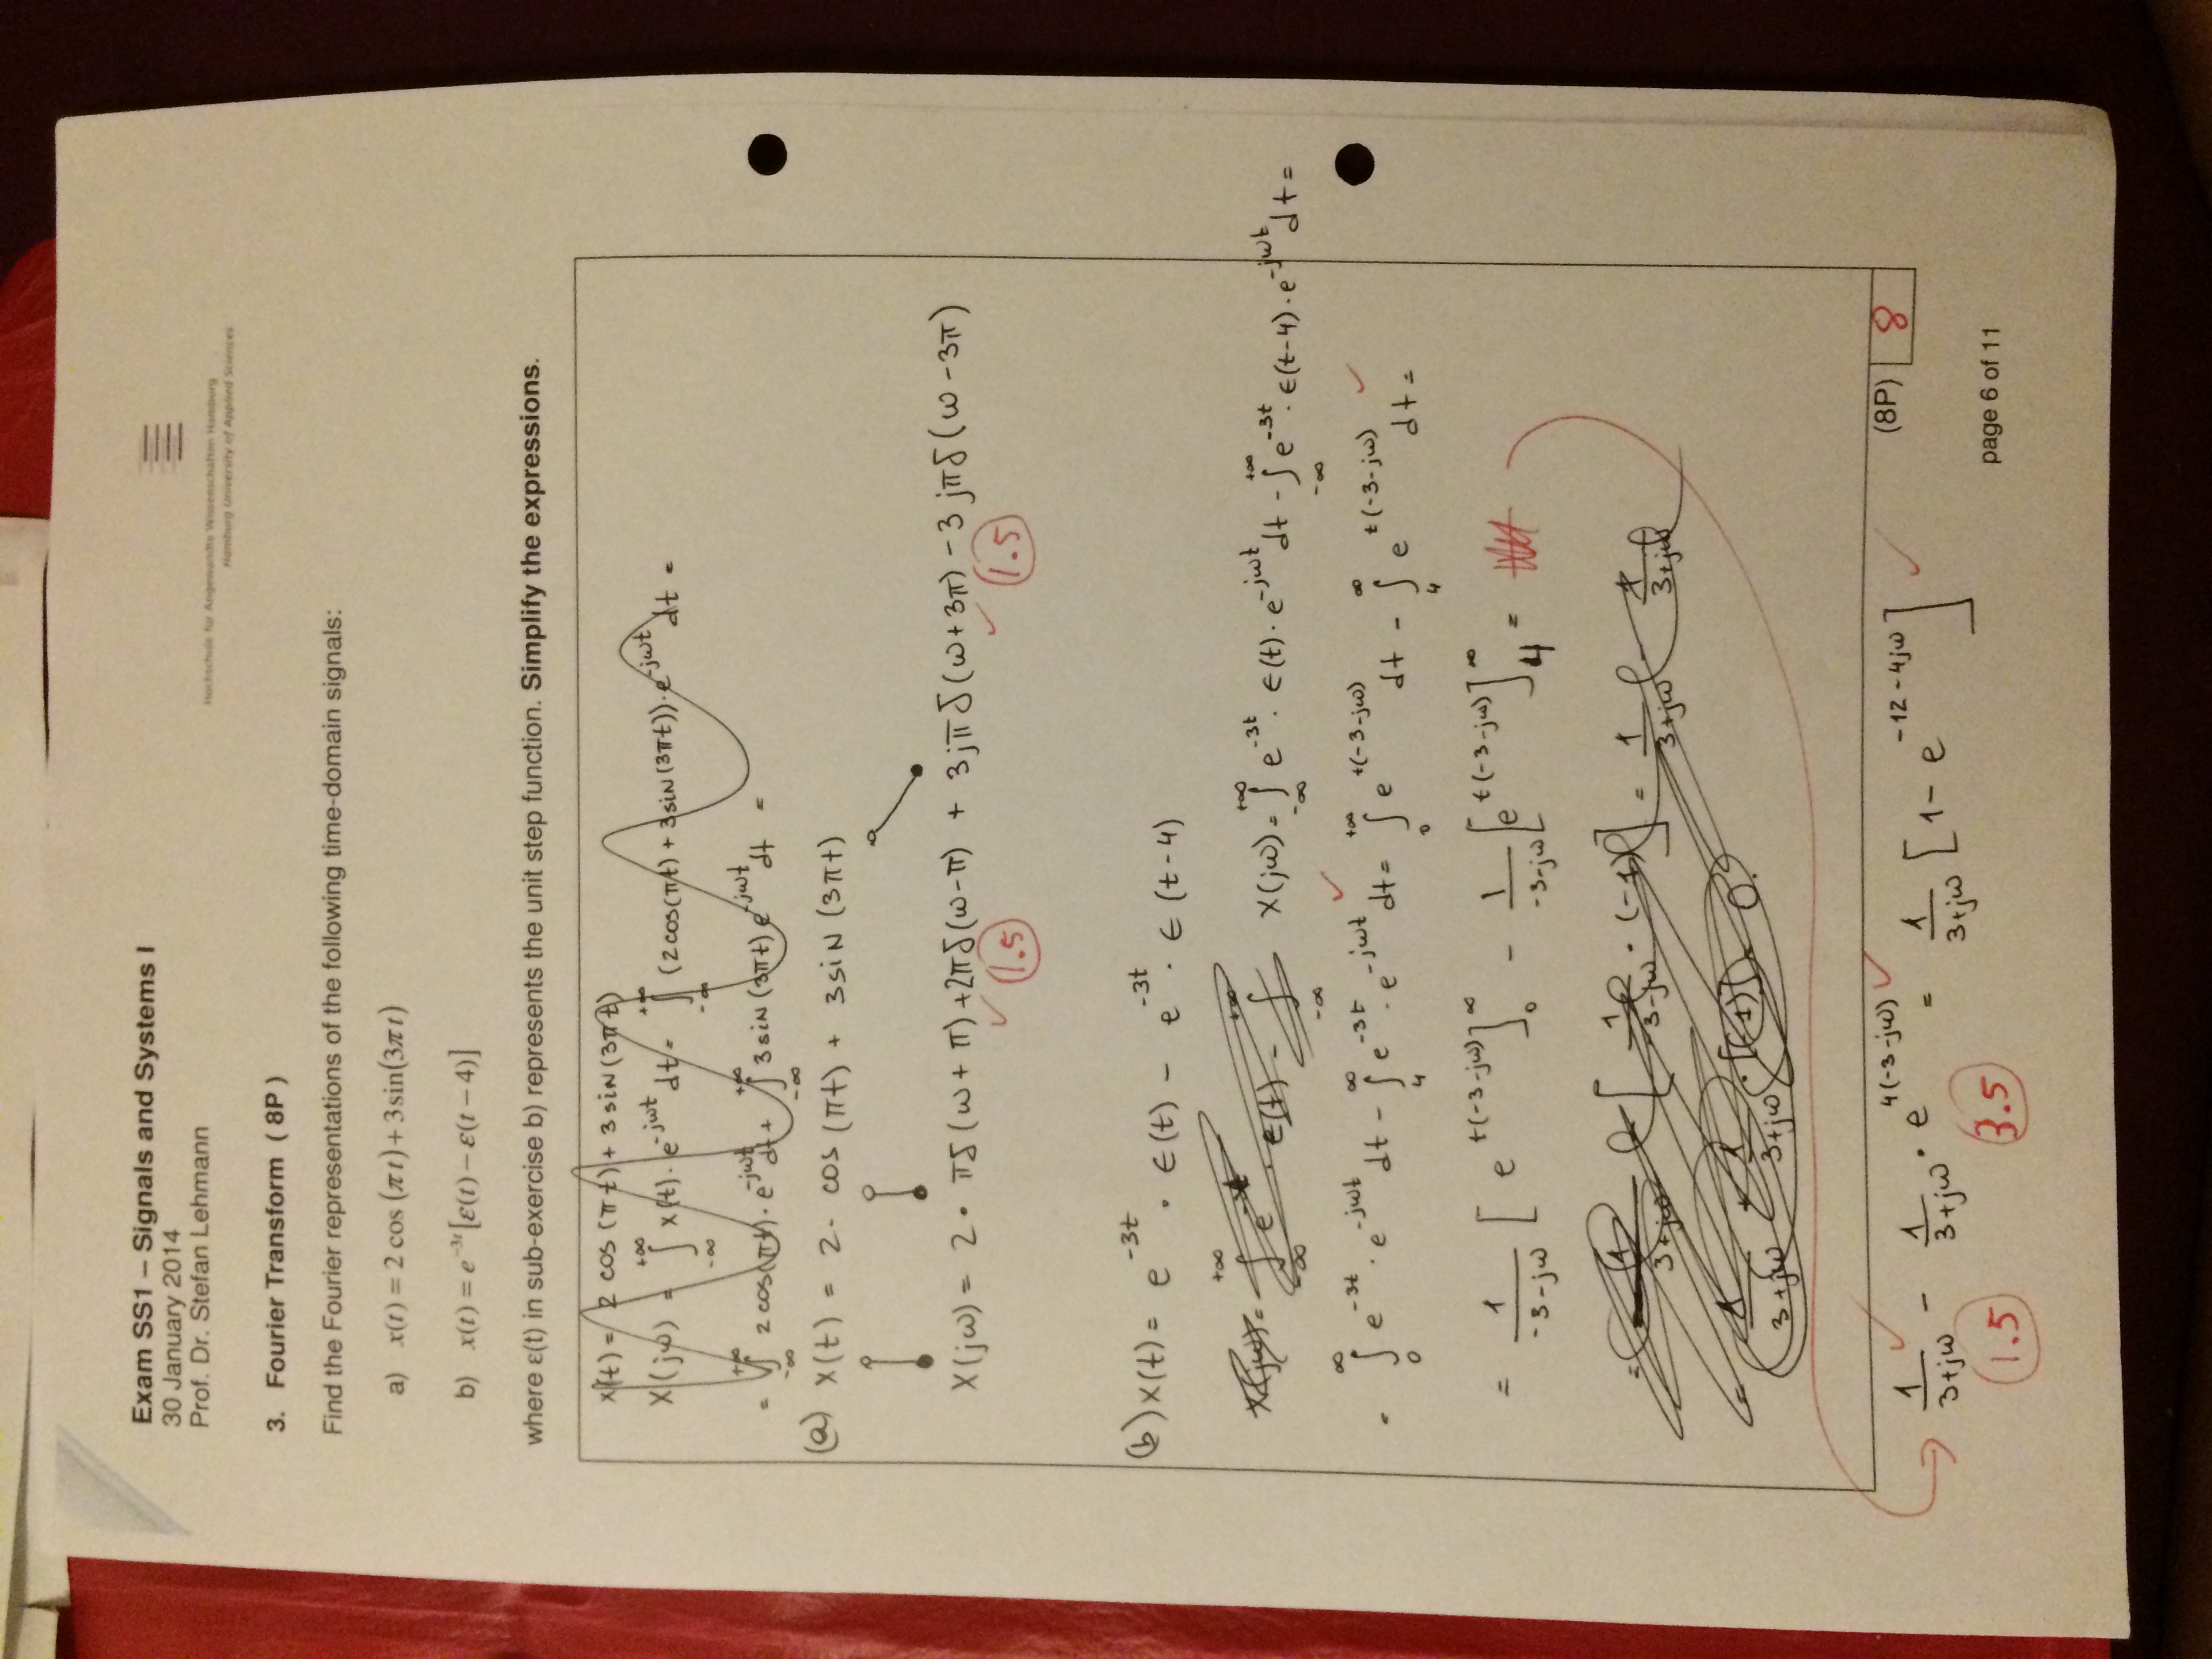 Exam SS1 – Signals and Systems I
30 January 2014
Prof. Dr. Stefan Lehmann
Hochschule für Angewandte Wissenschaften Hamburg
Hamburg University of Applied Sciences
3. Fourier Transform ( 8P )
Find the Fourier representations of the following time-domain signals:
a) x(t) = 2 cos (π t) + 3 sin(3π t)
b) x(t) = e^{-3t} [ε(t) – ε(t – 4)]
where ε(t) in sub-exercise b) represents the unit step function. Simplify the expressions.
x(t) = 2 cos (πt) + 3 sin (3πt)
X(jω) = ∫_{-∞}^{+∞} x(t) · e^{-jωt} dt = ∫_{-∞}^{+∞} (2cos(πt) + 3sin(3πt)) · e^{-jωt} dt =
= ∫_{-∞}^{+∞} 2cos(πt) · e^{-jωt} dt + ∫_{-∞}^{+∞} 3sin(3πt) e^{-jωt} dt =
(a) x(t) = 2 · cos (πt) + 3 sin (3πt)
X(jω) = 2 · πδ(ω + π) + 2πδ(ω-π) + 3jπδ(ω+3π) - 3jπδ(ω-3π)
✓ 1.5 ✓ 1.5
(b) x(t) = e^{-3t} · ϵ(t) – e^{-3t} · ϵ(t-4)
X(jω) = ∫_{-∞}^{+∞} e^{-3t} · ϵ(t) · e^{-jωt} dt - ∫_{-∞}^{+∞} e^{-3t} · ϵ(t-4) · e^{-jωt} dt =
= ∫_{0}^{∞} e^{-3t} · e^{-jωt} dt - ∫_{4}^{∞} e^{-3t} · e^{-jωt} dt ✓ = ∫_{0}^{+∞} e^{t(-3-jω)} dt - ∫_{4}^{∞} e^{t(-3-jω)} dt = ✓
= 1/(-3-jω) [e^{t(-3-jω)}]_{0}^{∞} - 1/(-3-jω) [e^{t(-3-jω)}]_{4}^{∞} =
(8P) 8
1/(3+jω) ✓ - 1/(3+jω) · e^{4(-3-jω)} ✓ = 1/(3+jω) [1 - e^{-12-4jω}] ✓
1.5 3.5
page 6 of 11